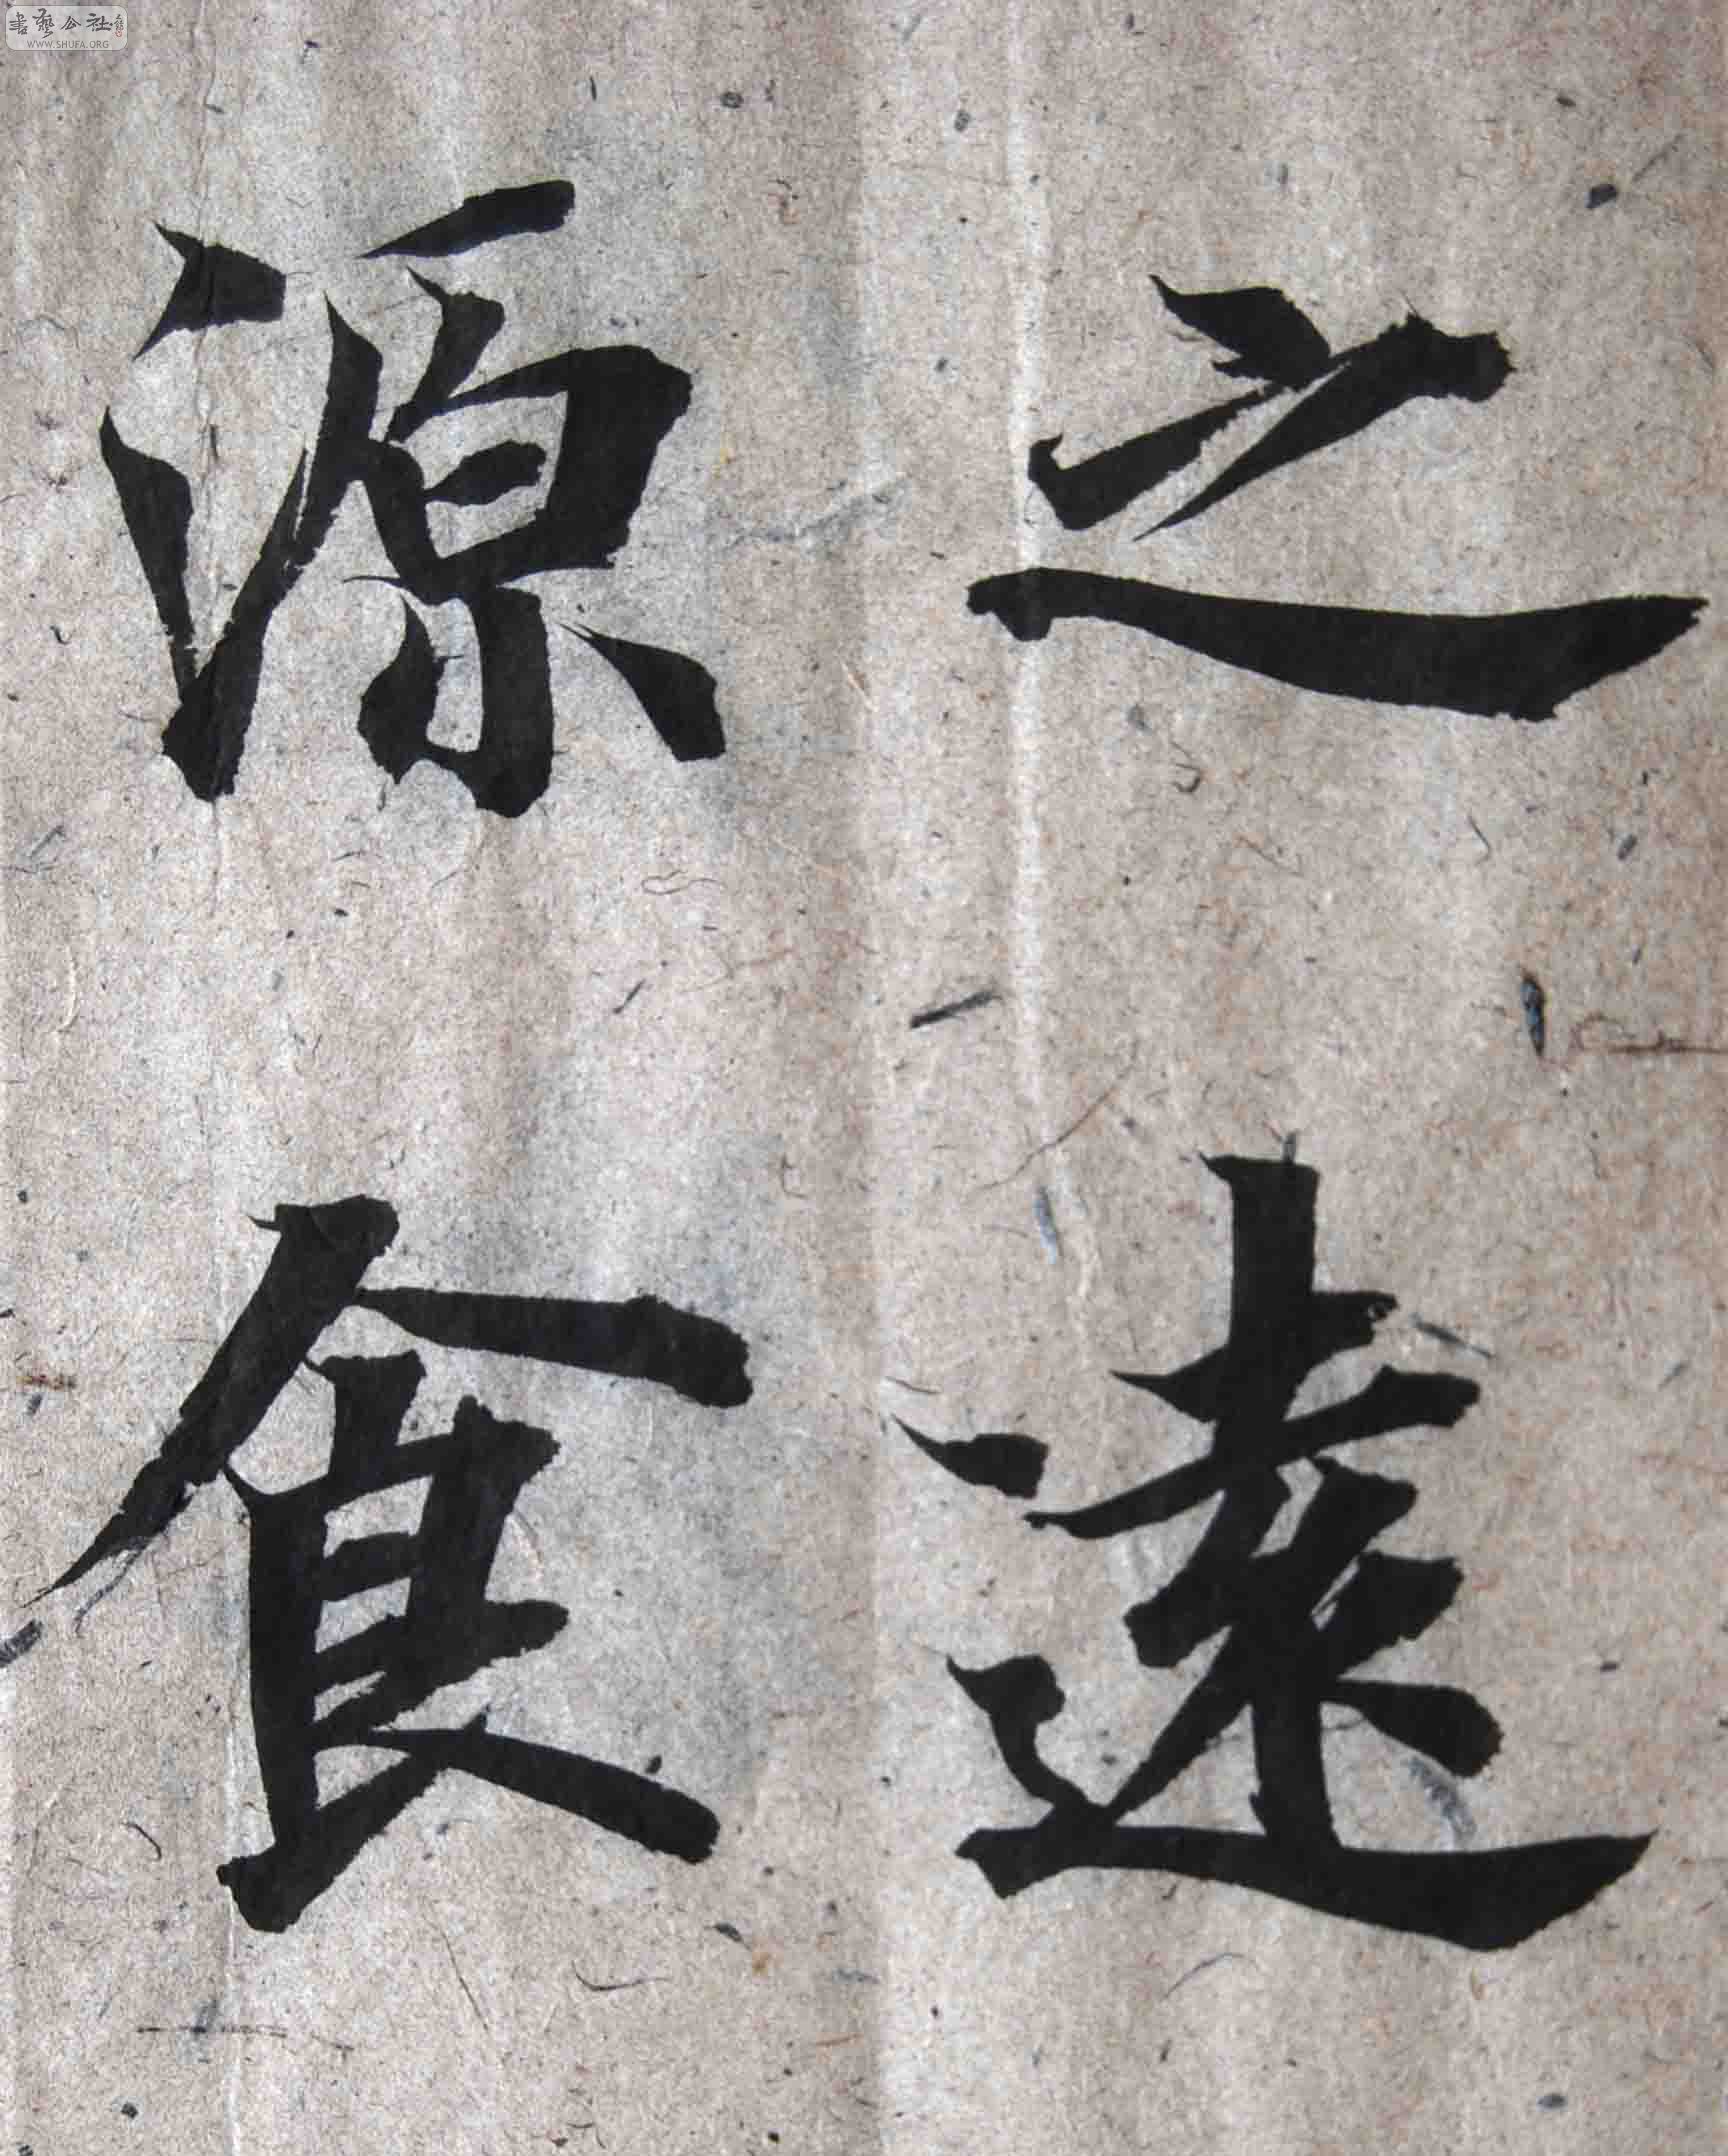 之遠
源食
書藝公社
WWW.SHUFA.ORG